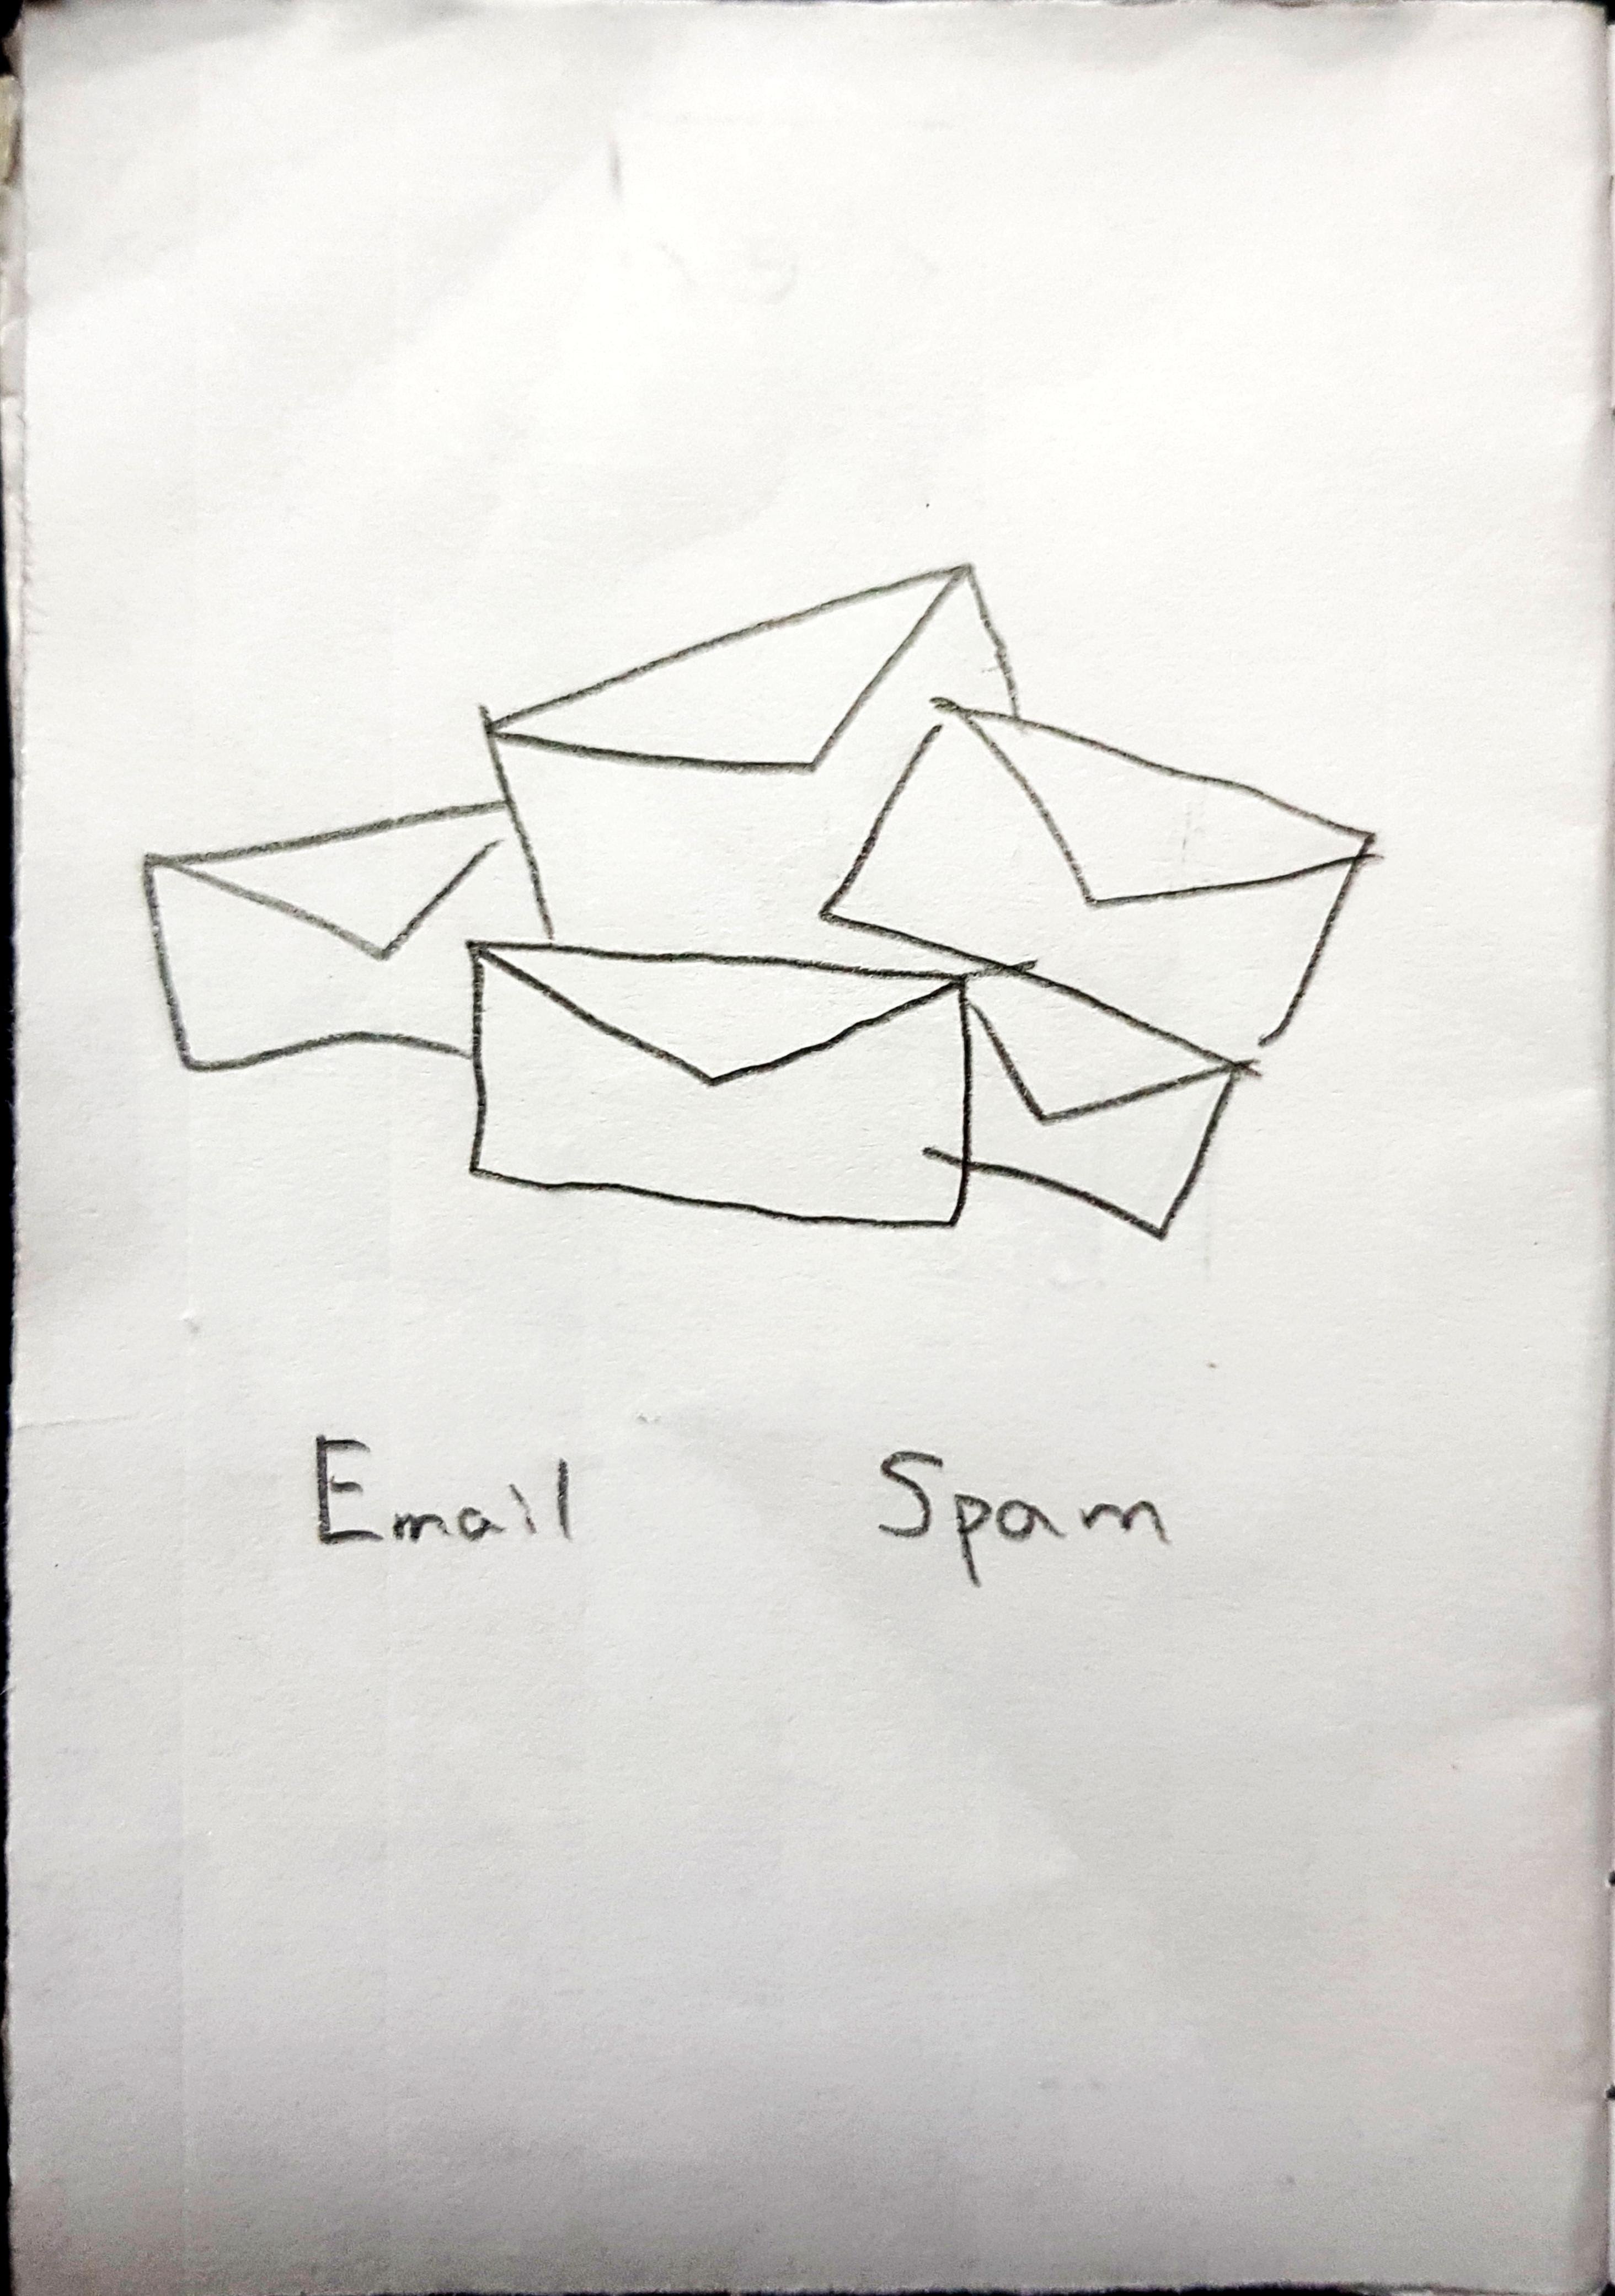 Email Spam